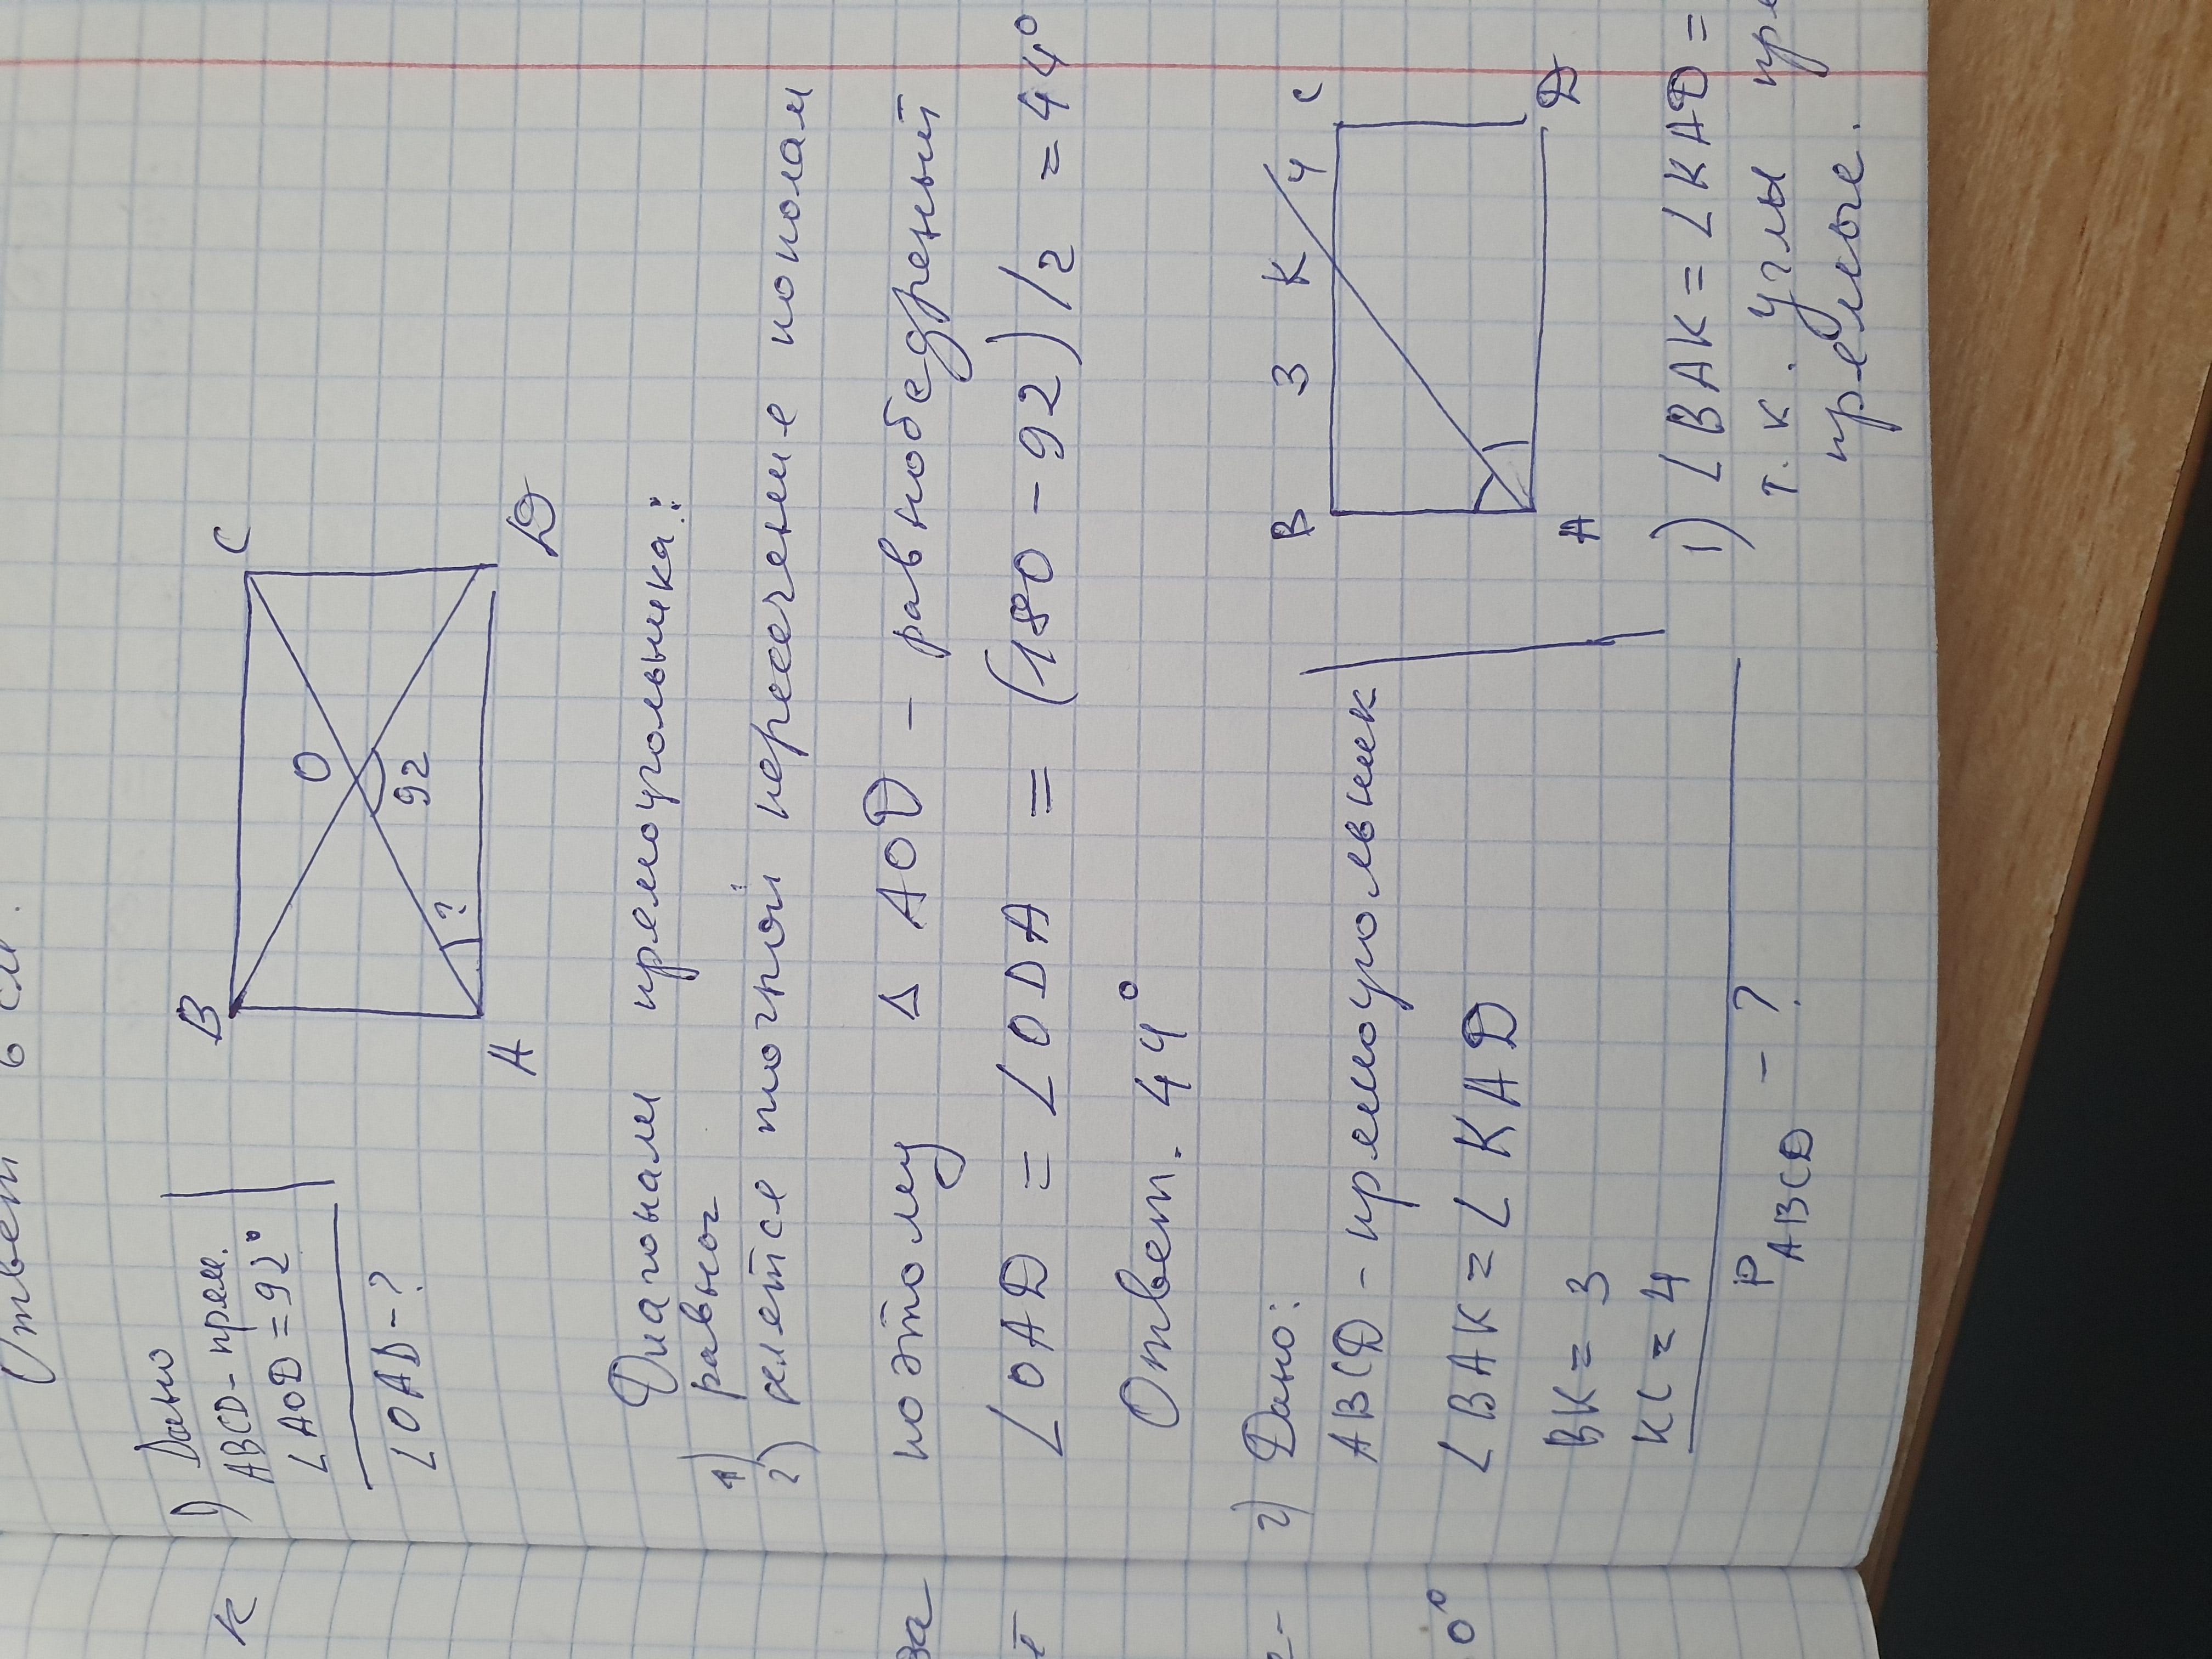 Ответ 6 см.
1) Дано
ABCD - прям.
∠AOD = 92°
∠OAD - ?
B
C
O
92
?
A
D
Диагонали прямоугольника:
1) равны
2) точкой пересечение пополам
поэтому △ AOD - равнобедренный
∠OAD = ∠ODA = (180 - 92) / 2 = 44°
Ответ. 44°
2) Дано:
ABCD - прямоугольник
∠BAK = ∠KAD
BK = 3
KC = 4
P ABCD - ?
B 3 K 4 C
A
D
1) ∠BAK = ∠KAD =
т. к. углы
прямые.
K
0°